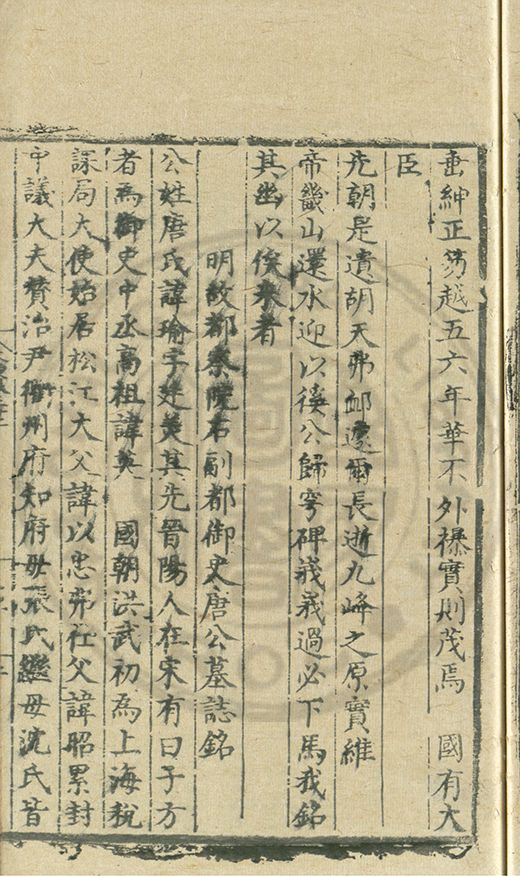 垂紳正笏越五六年華不外襮實則茂焉　國有大
臣
先朝是遺胡天弗卹遽爾長逝九峰之原實維
帝畿山還水迎以徯公歸穹碑峩峩過必下馬我銘
其幽以俟來者
明故都察院右副都御史唐公墓誌銘
公姓唐氏諱瑜字廷美其先晉陽人在宋有曰子方
者為御史中丞高祖諱英　國朝洪武初為上海稅
課局大使始居松江大父諱以忠弗仕父諱昭累封
中議大夫贊治尹衢州府知府母張氏繼母沈氏皆